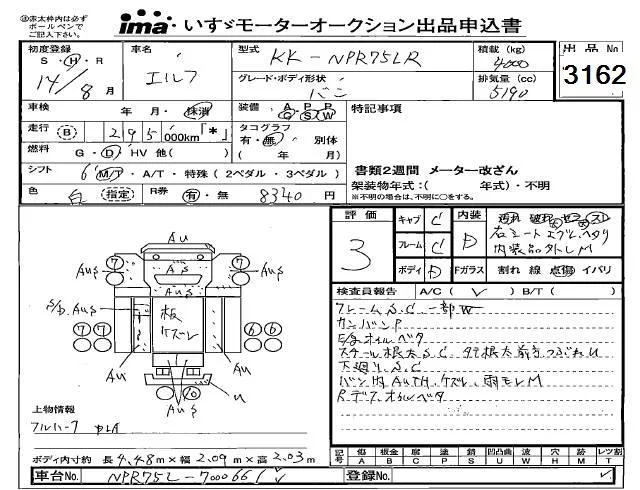 ※赤太枠内は必ず
ボールペンで
ご記入下さい。
ima いすゞモーターオークション出品申込書
初度登録 S・H・R 14/8月
車名 エルフ
型式 KK-NPR75LR
積載(kg) 4000
出品No 3162
グレード・ボディ形状 バン
排気量(cc) 5190
車検 年 月・抹消
装備 A P P G S W
特記事項
走行 B 295,000km「*」
タコグラフ 有・無 別体 ( 年 月)
燃料 G・D HV 他( )
シフト 6 M/T・A/T・特殊(2ペダル・3ペダル)
書類2週間 メーター改ざん
架装物年式:( 年式)・不明
※不明の場合は、不明に○をする。
色 白 指定
R券 有・無 8340円
評価 3
キャブ C
フレーム C
ボディ D
内装 D
右シート
内装品外しM
Fガラス 割れ 線 点傷 イバリ
検査員報告 A/C(✓) B/T( )
フレームS.C 一部W
カンバンP
E/gオイルベタ
スチール根太S.C
下廻りS.C
バン内AUTH.ケズレ、雨モレM
Rデフオイルベタ
Au
7 7
AuS AS AuS
S/D.AuS 板ケズレ
7 7 6 6
Au Au
AuS U
上物情報
フルハーフ
ボディ内寸約 長4.48m×幅2.09m×高2.03m
記号 傷A 板金B 腐C 塗P 錆S 凹凸曲U 波W 穴H 跡M レンズ割L
車台No. NPR75L-7000661✓
登録No. ✓